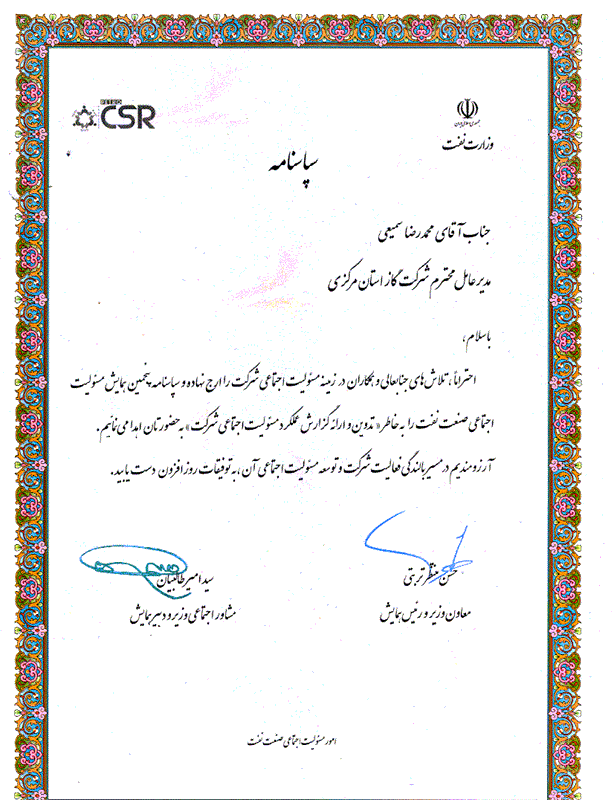 PETRO
CSR
جمهوری اسلامی ایران
وزارت نفت
سپاسنامه
جناب آقای محمدرضا سمیعی
مدیر عامل محترم شرکت گاز استان مرکزی
باسلام،
احتراماً، تلاش‌های جنابعالی و همکاران در زمینه مسئولیت اجتماعی شرکت را ارج نهاده و سپاسنامه پنجمین همایش مسئولیت
اجتماعی صنعت نفت را به خاطر «تدوین و ارائه گزارش عملکرد مسئولیت اجتماعی شرکت» به حضورتان اهدا می نمائیم.
آرزومندیم در مسیر بالندگی فعالیت شرکت و توسعه مسئولیت اجتماعی آن، به توفیقات روزافزون دست یابید.
حسن منتظر تربتی
معاون وزیر و رئیس همایش
سید امیر طالبیان
مشاور اجتماعی وزیر و دبیر همایش
امور مسئولیت اجتماعی صنعت نفت